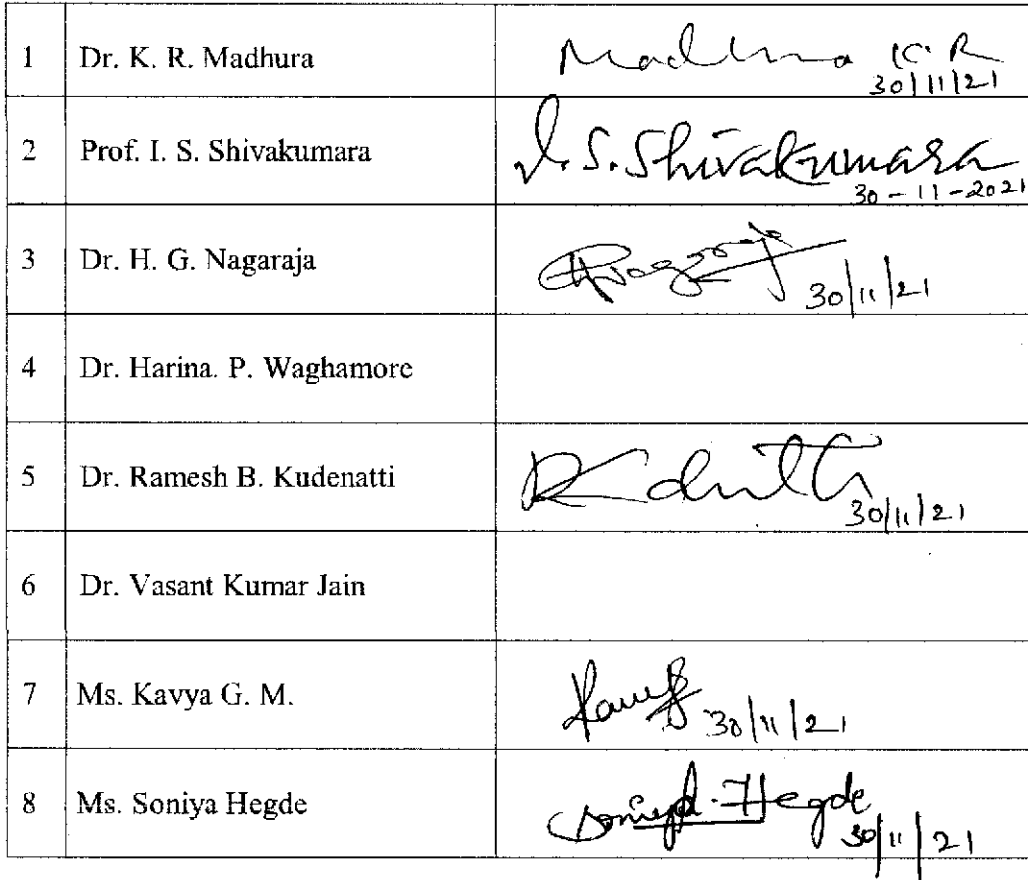 1 Dr. K. R. Madhura Madhura K R
30/11/21
2 Prof. I. S. Shivakumara I. S. Shivakumara
30-11-2021
3 Dr. H. G. Nagaraja
30/11/21
4 Dr. Harina. P. Waghamore
5 Dr. Ramesh B. Kudenatti
30/11/21
6 Dr. Vasant Kumar Jain
7 Ms. Kavya G. M.
30/11/21
8 Ms. Soniya Hegde Soniya Hegde
30/11/21